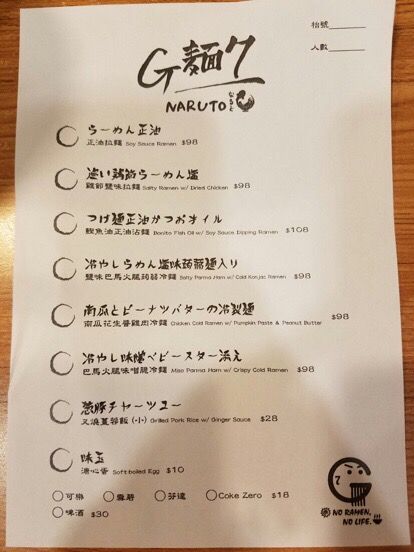 枱號
人數
G麵7
NARUTO なると
らーめん正油
正油拉麵 Soy Sauce Ramen $98
雞節鹽味拉麵 Salty Ramen w/ Dried Chicken $98
つけ麺正油かつおオイル
鰹魚油正油沾麵 Bonito Fish Oil w/ Soy Sauce Dipping Ramen $108
冷やしらめん塩味蒟蒻麺入り
鹽味巴馬火腿蒟蒻冷麵 Salty Parma Ham w/ Cold Konjac Ramen $98
南瓜とピーナツバターの冷製麺
南瓜花生醬雞肉冷麵 Chicken Cold Ramen w/ Pumpkin Paste & Peanut Butter $98
冷やし味噌ベビースター添え
巴馬火腿味噌脆冷麵 Miso Parma Ham w/ Crispy Cold Ramen $98
葱豚チャーツユー
叉燒薑蓉飯 (小) Grilled Pork Rice w/ Ginger Sauce $28
味玉
溏心蛋 Soft boiled Egg $10
可樂 雪碧 芬達 Coke Zero $18
啤酒 $30
NO RAMEN,
NO LIFE.